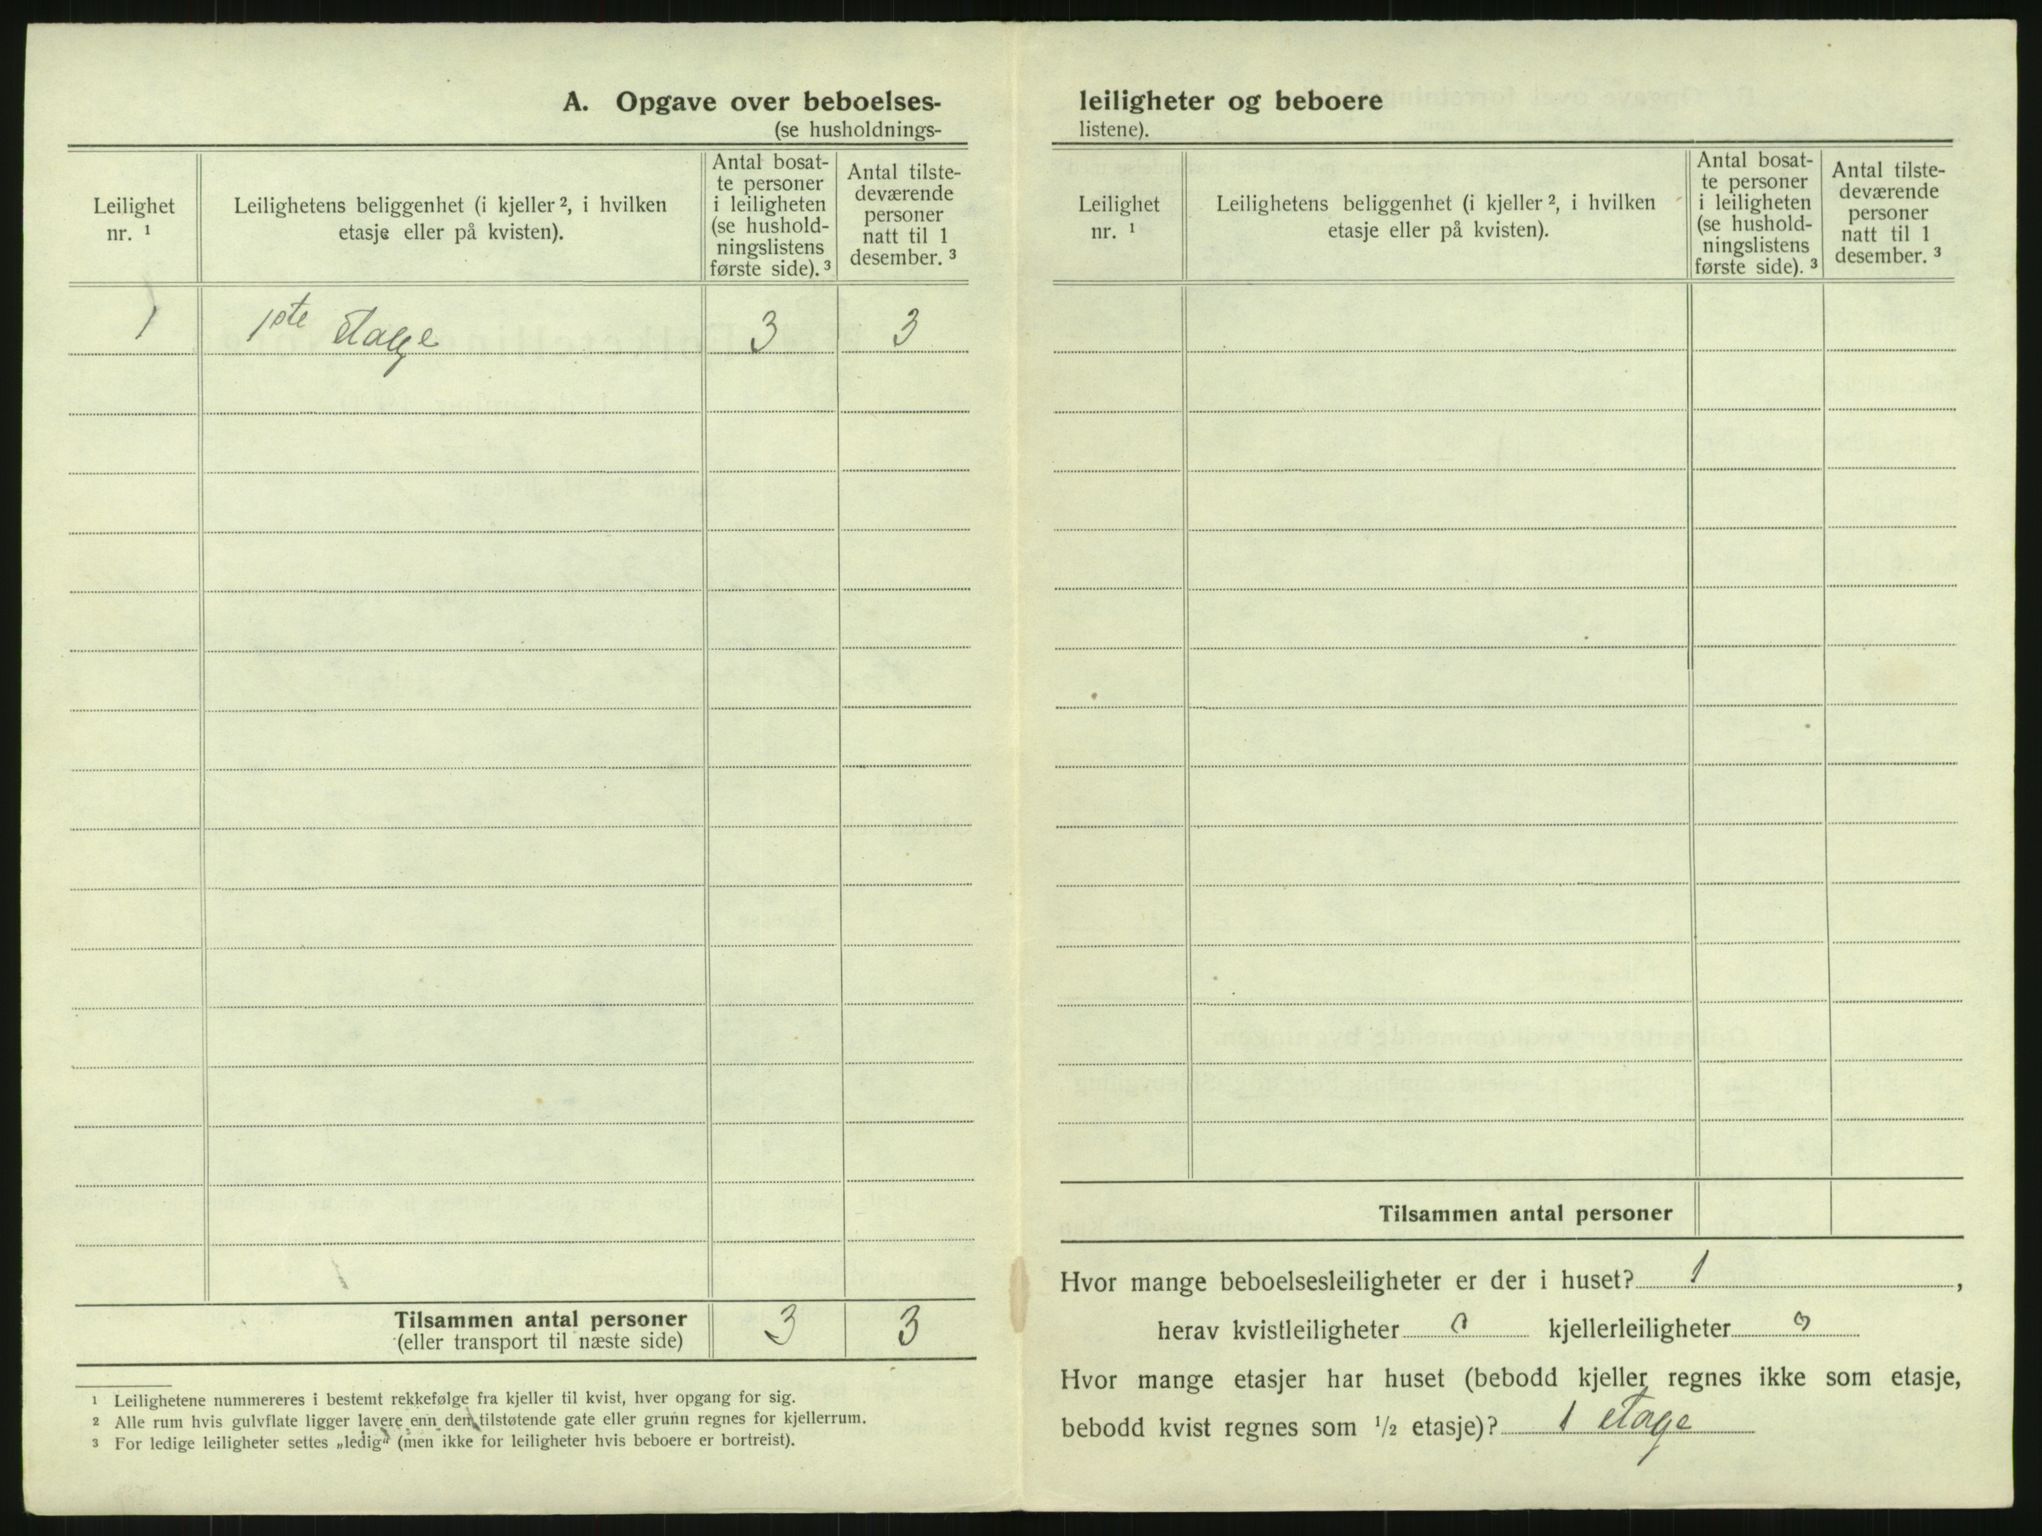 A. Opgave over beboelses-
(se husholdnings-
Leilighet
nr. ¹
Leilighetens beliggenhet (i kjeller ², i hvilken
etasje eller på kvisten).
Antal bosat-
te personer
i leiligheten
(se hushold-
ningslistens
første side). ³
Antal tilste-
deværende
personer
natt til 1
desember. ³
1 1ste Etage 3 3
Tilsammen antal personer 3 3
(eller transport til næste side)
¹ Leilighetene nummereres i bestemt rekkefølge fra kjeller til kvist, hver opgang for sig.
² Alle rum hvis gulvflate ligger lavere enn den tilstøtende gate eller grunn regnes for kjellerrum.
³ For ledige leiligheter settes „ledig“ (men ikke for leiligheter hvis beboere er bortreist).
leiligheter og beboere
listene).
Leilighet
nr. ¹
Leilighetens beliggenhet (i kjeller ², i hvilken
etasje eller på kvisten).
Antal bosat-
te personer
i leiligheten
(se hushold-
ningslistens
første side). ³
Antal tilste-
deværende
personer
natt til 1
desember. ³
Tilsammen antal personer
Hvor mange beboelsesleiligheter er der i huset? 1,
herav kvistleiligheter 0 kjellerleiligheter 0
Hvor mange etasjer har huset (bebodd kjeller regnes ikke som etasje,
bebodd kvist regnes som ½ etasje)? 1 etage